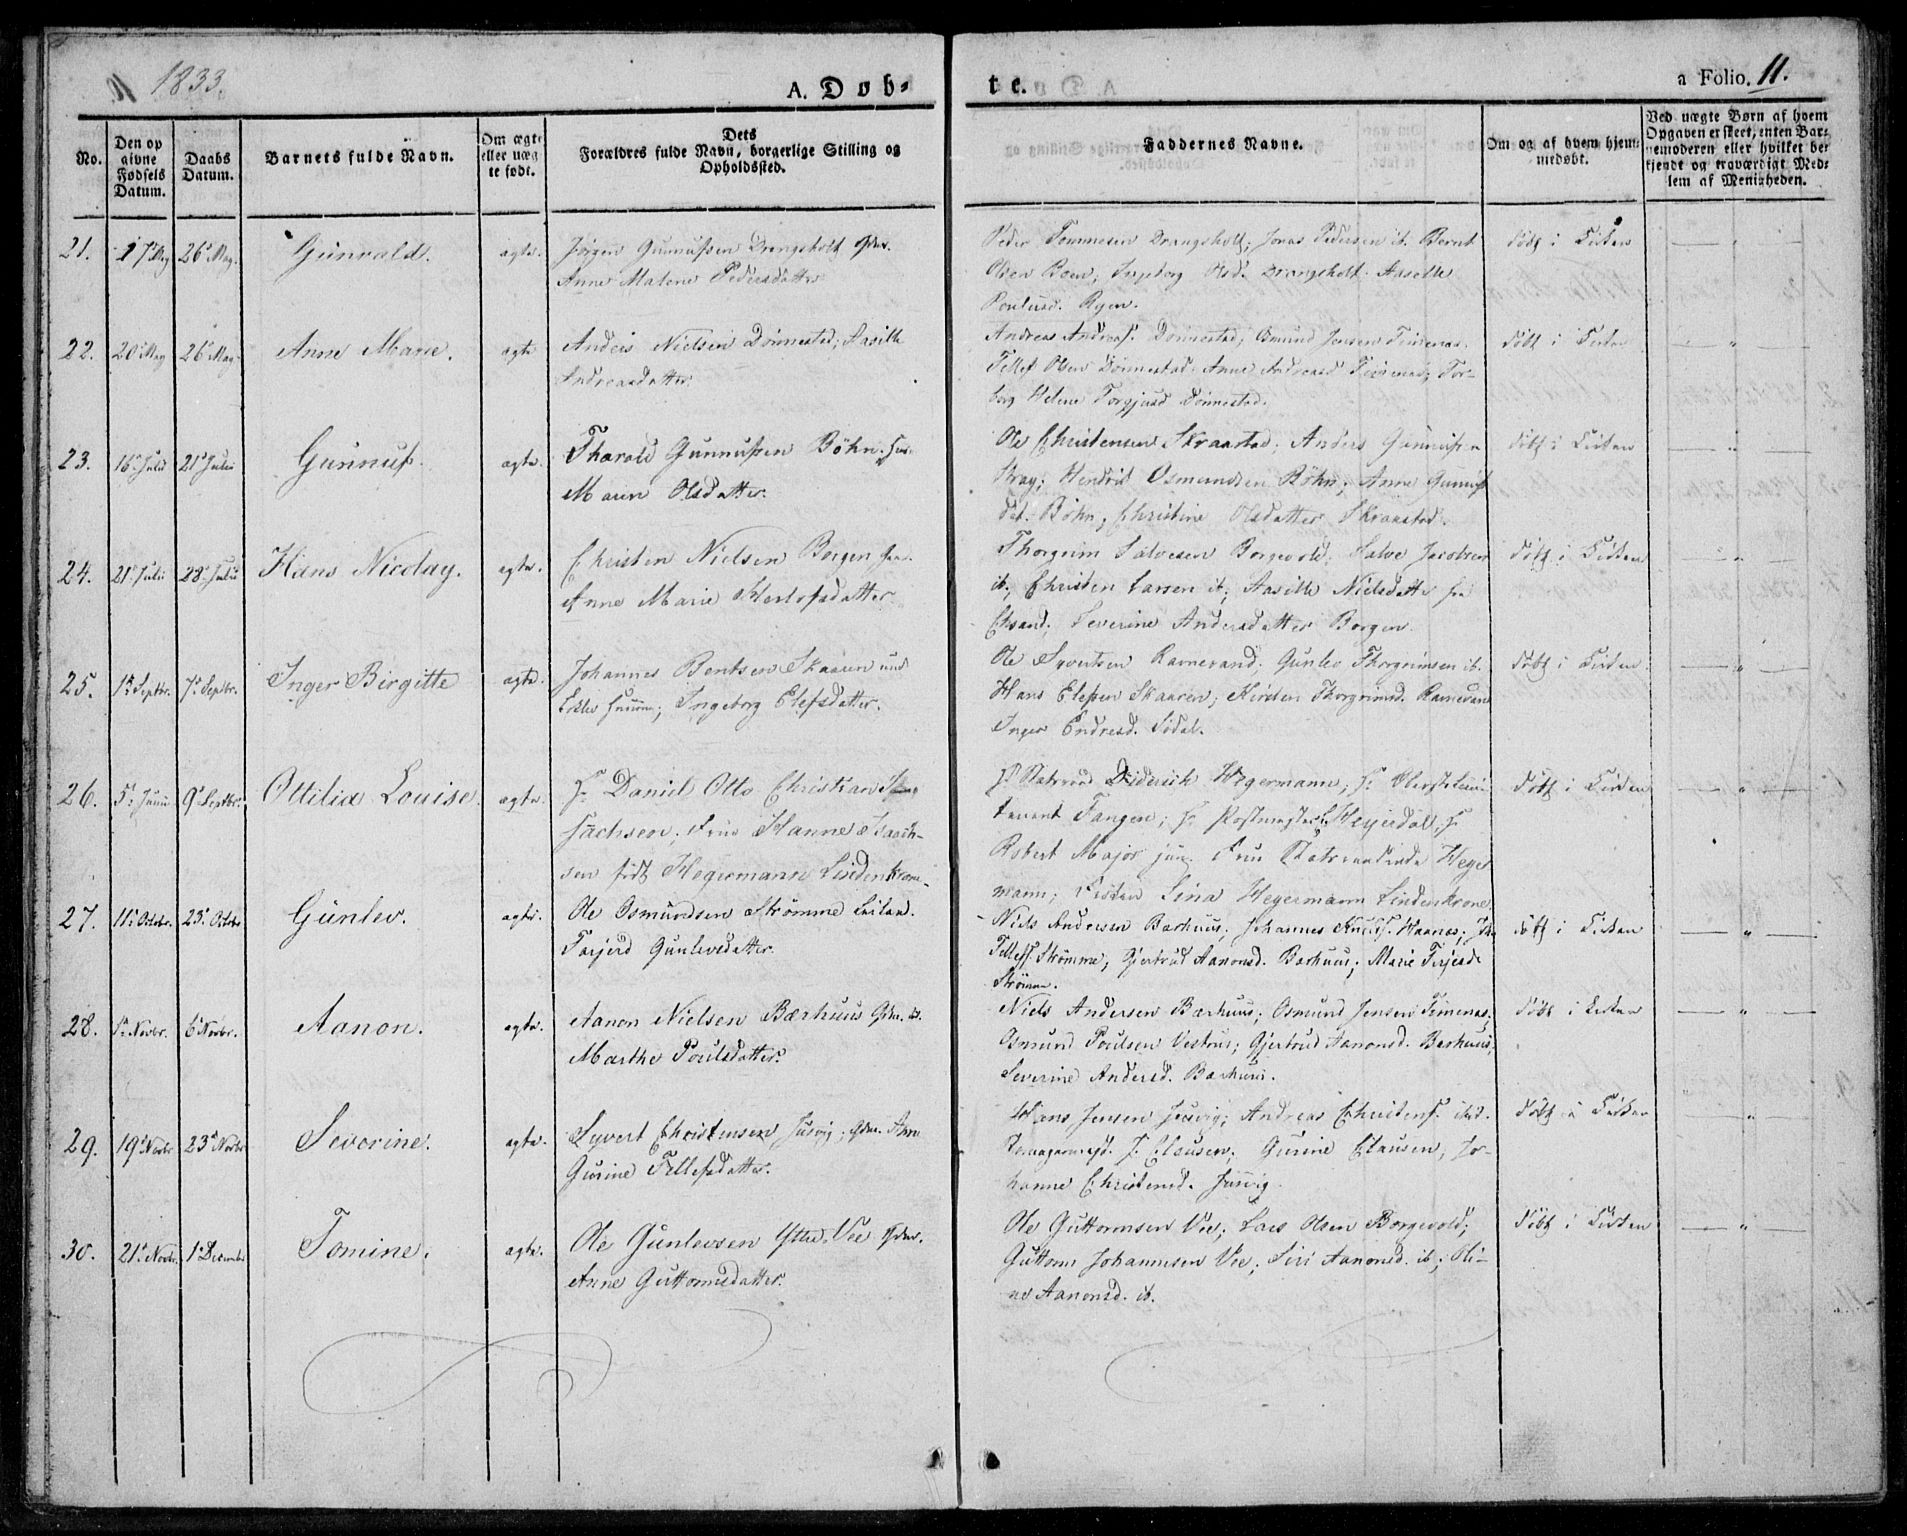 1833.
A. Døb-
te.
a Folio. 11.
No.
Den op
givne
Fødsels
Datum.
Daabs
Datum.
Barnets fulde Navn.
Om ægte
eller uæg
te født.
Dets
Forældres fulde Navn, borgerlige Stilling og
Opholdssted.
Faddernes Navne.
Om og af hvem hjem-
medøbt.
Ved uægte Børn af hvem
Opgaven er skeet, enten Bar-
nemoderen eller hvilket be-
kjendt og troværdigt Med-
lem af Menigheden.
21. 17 May 26 May. Gunvald. ægte. Jörgen Gunnufsen Drangsholt Gdm.
Anne Malene Pedersdatter
Peder Tommesen Drangsholt; Jonas Pedersen ib. Bernt
Olsen Boen; Ingeborg Olsd. Drangsholt. Aasille
Poulusd. Ryen.
döbt i Kirken
22. 20 May 26 May. Anne Marie. ægte Anders Nielsen Dönnestad; Aasille
Andreasdatter.
Andreas Andreas. Dönnestad; Osmund Jensen Timenes.
Tellef Olsen Dönnestad. Anne Andreasd Timenes; Tor-
borg Helene Torgjusd Dönnestad.
döbt i Kirken
23. 16 Juli 21 Julii Gunnuf. ægte. Tharald Gunnufsen Böhn.
Maren Olsdatter.
Ole Christensen Skraastad. Anders Gunnufsen
Stray; Hendrik Osmundsen Böhn; Anne Gunnufs
dat. Böhn; Christine Olsdatter Skraastad.
döbt i Kirken
24. 21 Julii 28 Julii Hans Nicolay. ægte. Christen Nielsen Borgen
Anne Marie Herlofsdatter
Thorgrim Salvesen Borgevold; Salve Jacobsen
ib; Christen Larsen ib; Aasille Nielsdatter fra
Chsand; Severine Andersdatter Borgen.
döbt i Kirken
25. 1 Septbr. 7 Septbr. Inger Birgitte ægte. Johannes Bentsen Skaaren und
Ingeborg Elefsdatter.
Ole Syvertsen Ravnevand. Gunlev Thorgrimsen ib.
Hans Elefsen Skaaren; Kirsten Thorgrimsd. Ravnevand
Inger Endresd. Södal.
döbt i Kirken
26. 5 Junii 9 Septbr. Ottilia Louise. ægte. Hr. Daniel Otto Christian Isaach
sachsen; Frue Hanne Isaach-
sen födt Hegermann Lindenkrone
Hr. Statsraad Diderich Hegermann; Hr. Oberstlieu
tenant Fangen; Hr. Postmester Heyerdal; Hr.
Robert Major jun. Frue Statsraadinde Heger
mann; Fröken Sina Hegermann Lindenkrone
döbt i Kirken
27. 11 Octobr. 25 Octobr Gunlev. ægte. Ole Osmundsen Strömme Leiland.
Tarjerd Gunlevsdatter.
Niels Andersen Barhuus; Johannes Knuds. Haanes;
Tellefs. Strömme; Gjertrud Aanonsd. Barhuus; Marie Terjesd.
Strömme.
döbt i Kirken
28. 1 Novbr. 6 Novbr. Aanon. ægte. Aanon Nielsen Bærhuus Gdm.
Marthe Poulsdatter.
Niels Andersen Barhuus; Osmund Jensen Timenes;
Osmund Poulsen Vestrus; Gjertrud Aanonsd. Barhuus;
Severine Andersd. Barhuus.
döbt i Kirken
29. 19 Novbr 23 Novbr Severine. ægte. Syvert Christensen Justvig; Gdm. Ane
Gurine Tellefsdatter.
Hans Jensen Justvig; Andreas Christens. ibd.
J. Clausen; Gurine Clausen, Jo-
hanne Christensd. Justvig.
döbt i Kirken
30. 21 Novbr. 1 December Tomine. ægte. Ole Gunlevsen Ytre Vee Gdm.
Anne Guttormsdatter.
Ole Guttormsen Vee; Lars Olsen Borgevold;
Guttorm Johannesen Vee; Siri Aanonsd. ib; Oli-
ne Aanonsd. ib.
döbt i Kirken